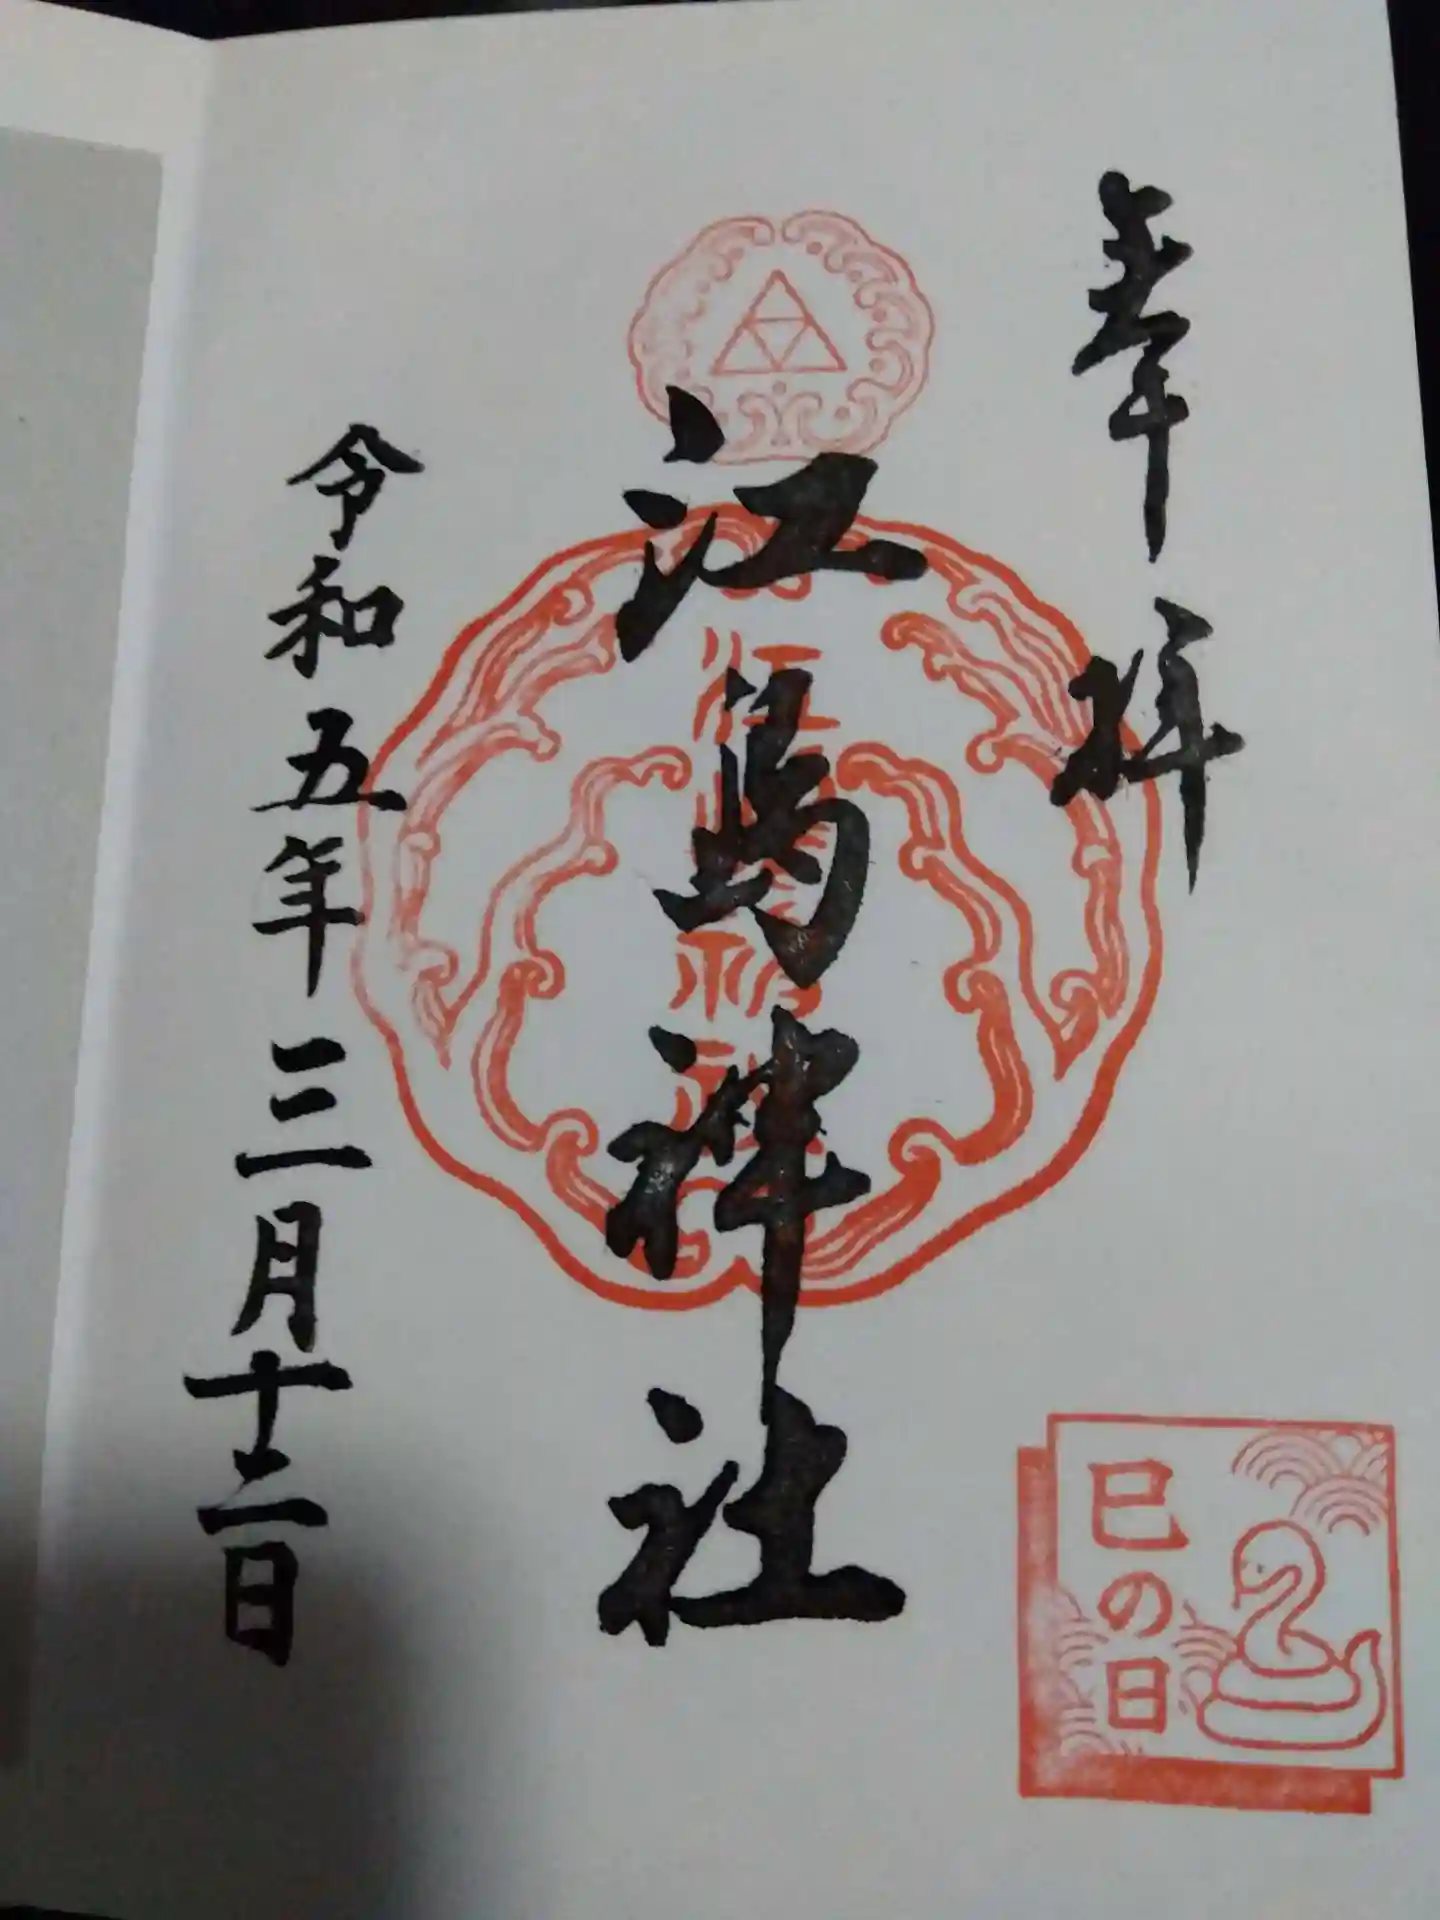 奉拝
江島神社
令和五年三月十二日
巳の日